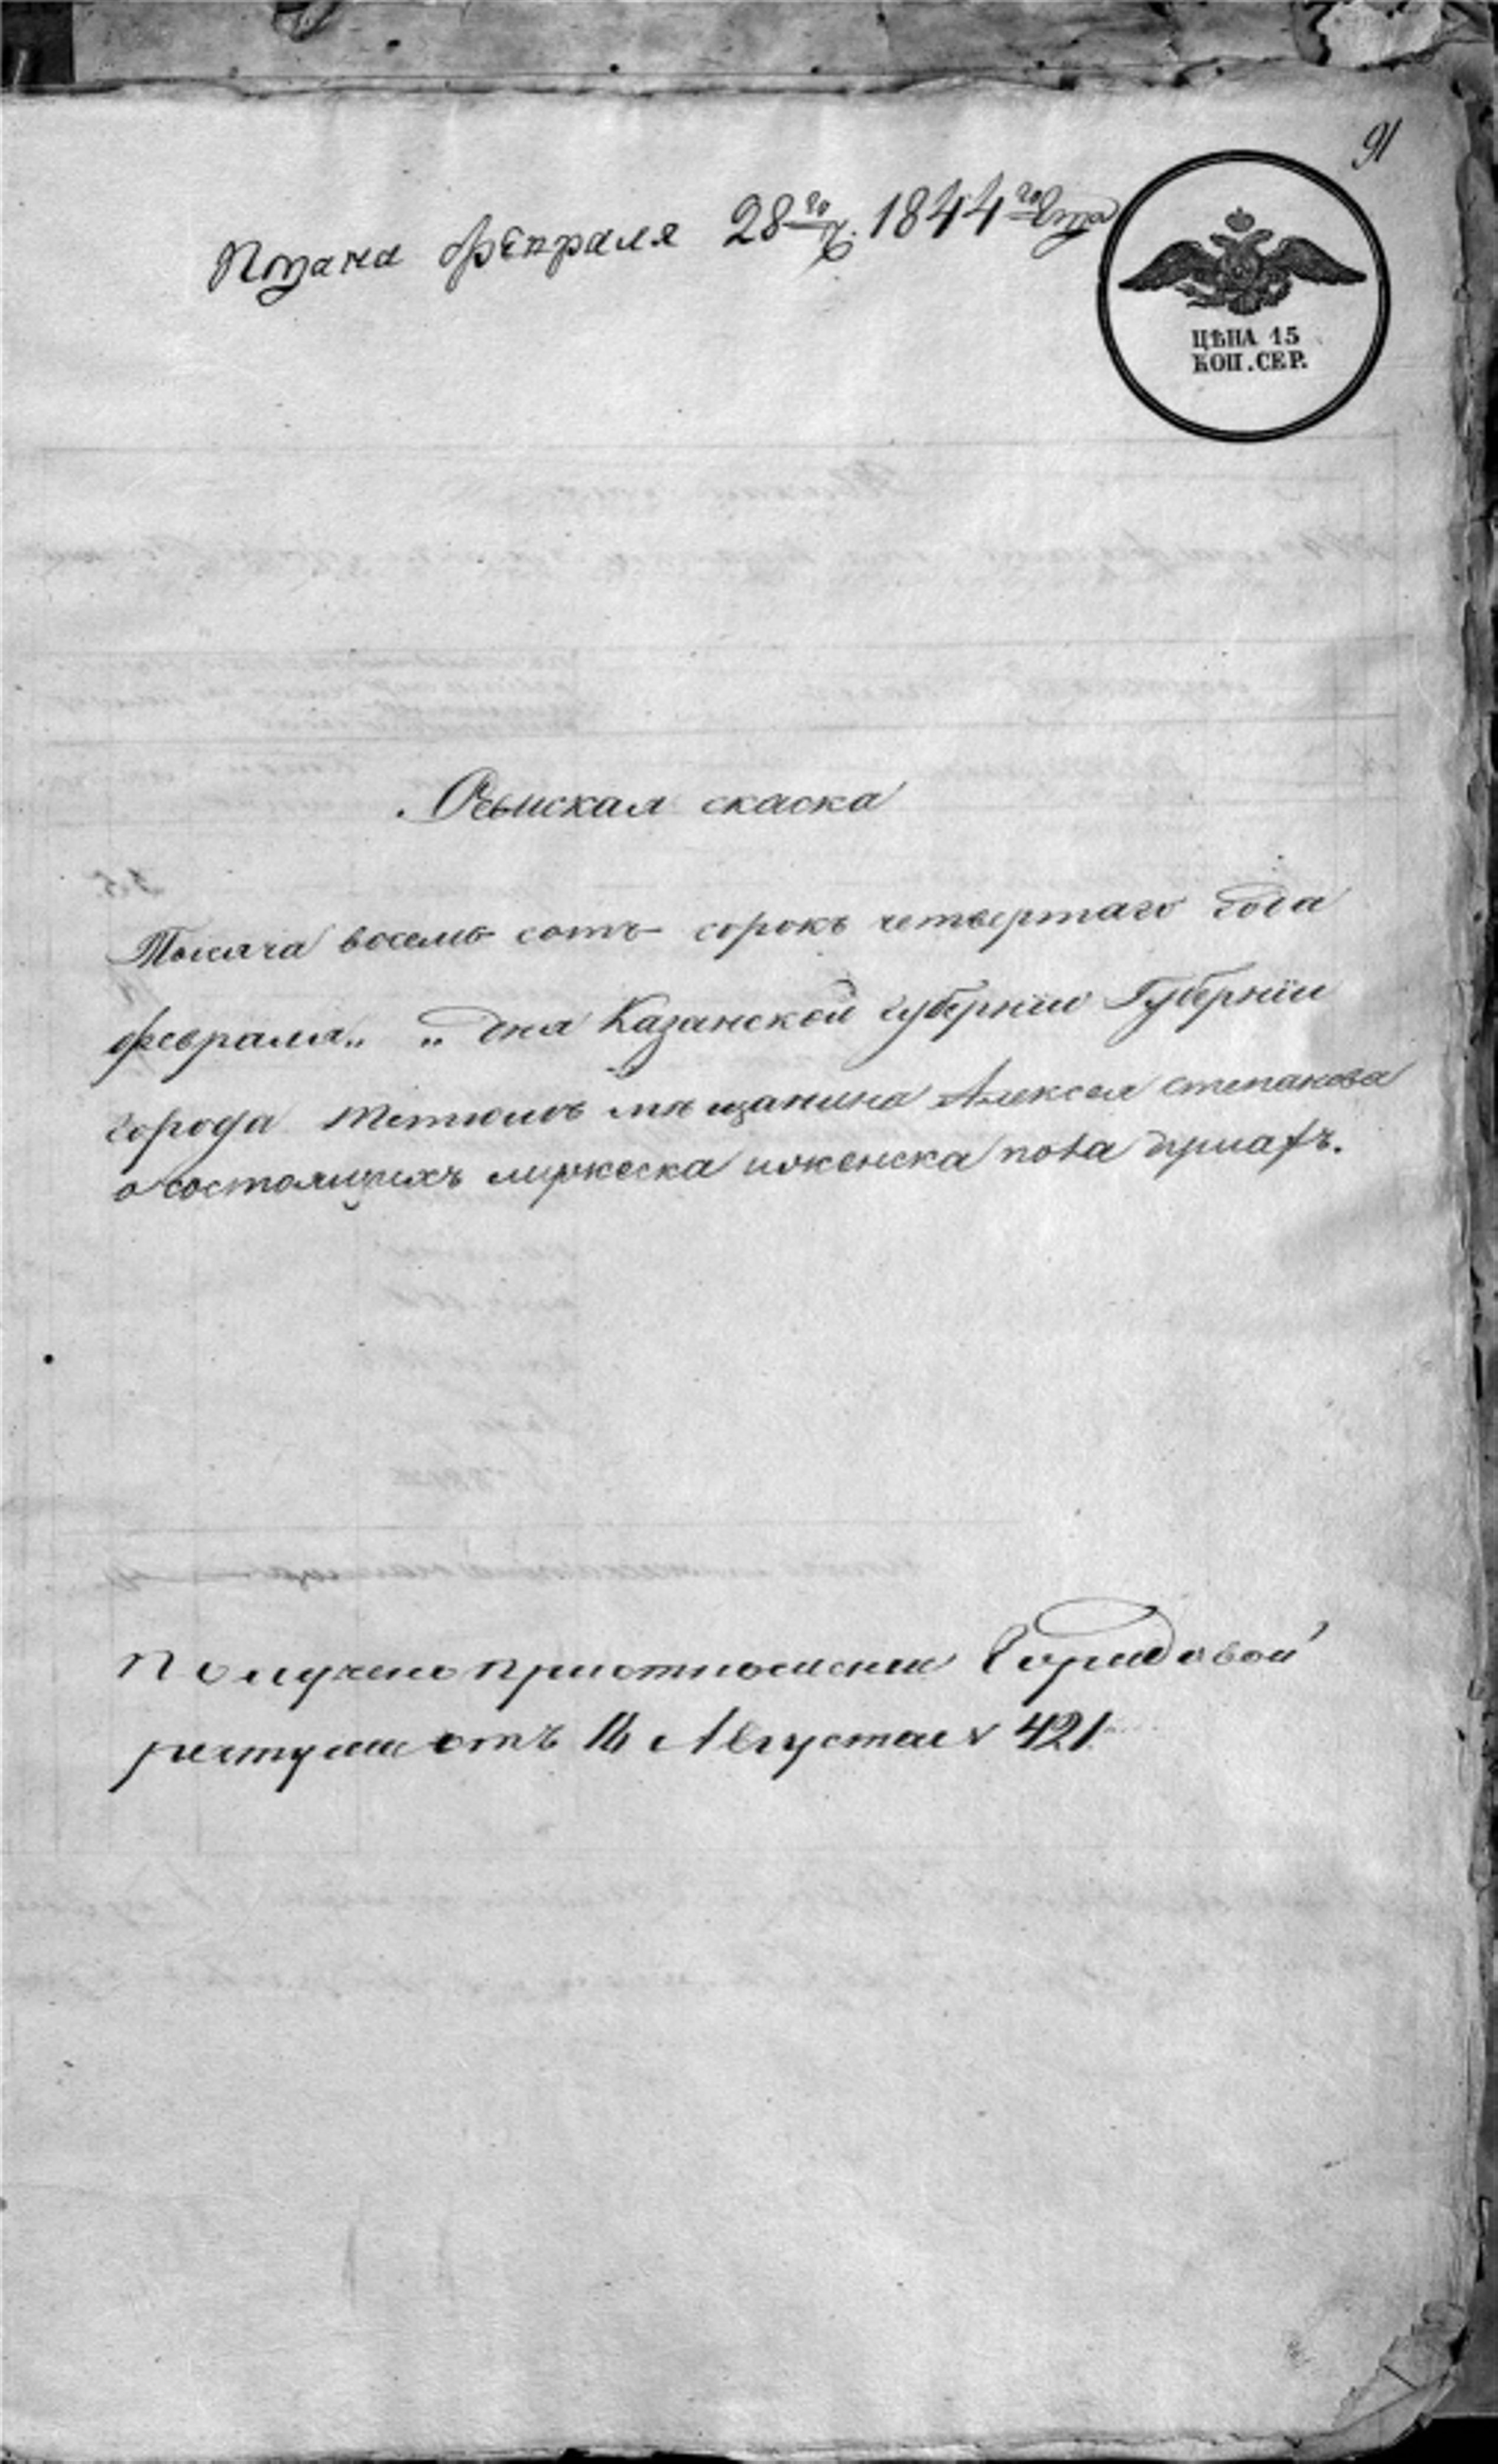 91
Подана февраля 28го ч. 1844го года
ЦѢНА 15
КОП. СЕР.
скаска
Тысяча восемь сотъ сорокъ четвертаго года
февраля „ „ дня Казанской губернiи Губернiи
города Тетюшъ мѣщанина Алексея степанова
о состоящихъ мужеска и женска пола душахъ.
Получено при отношенiи Городовой
ратуши отъ 14 Августа № 421